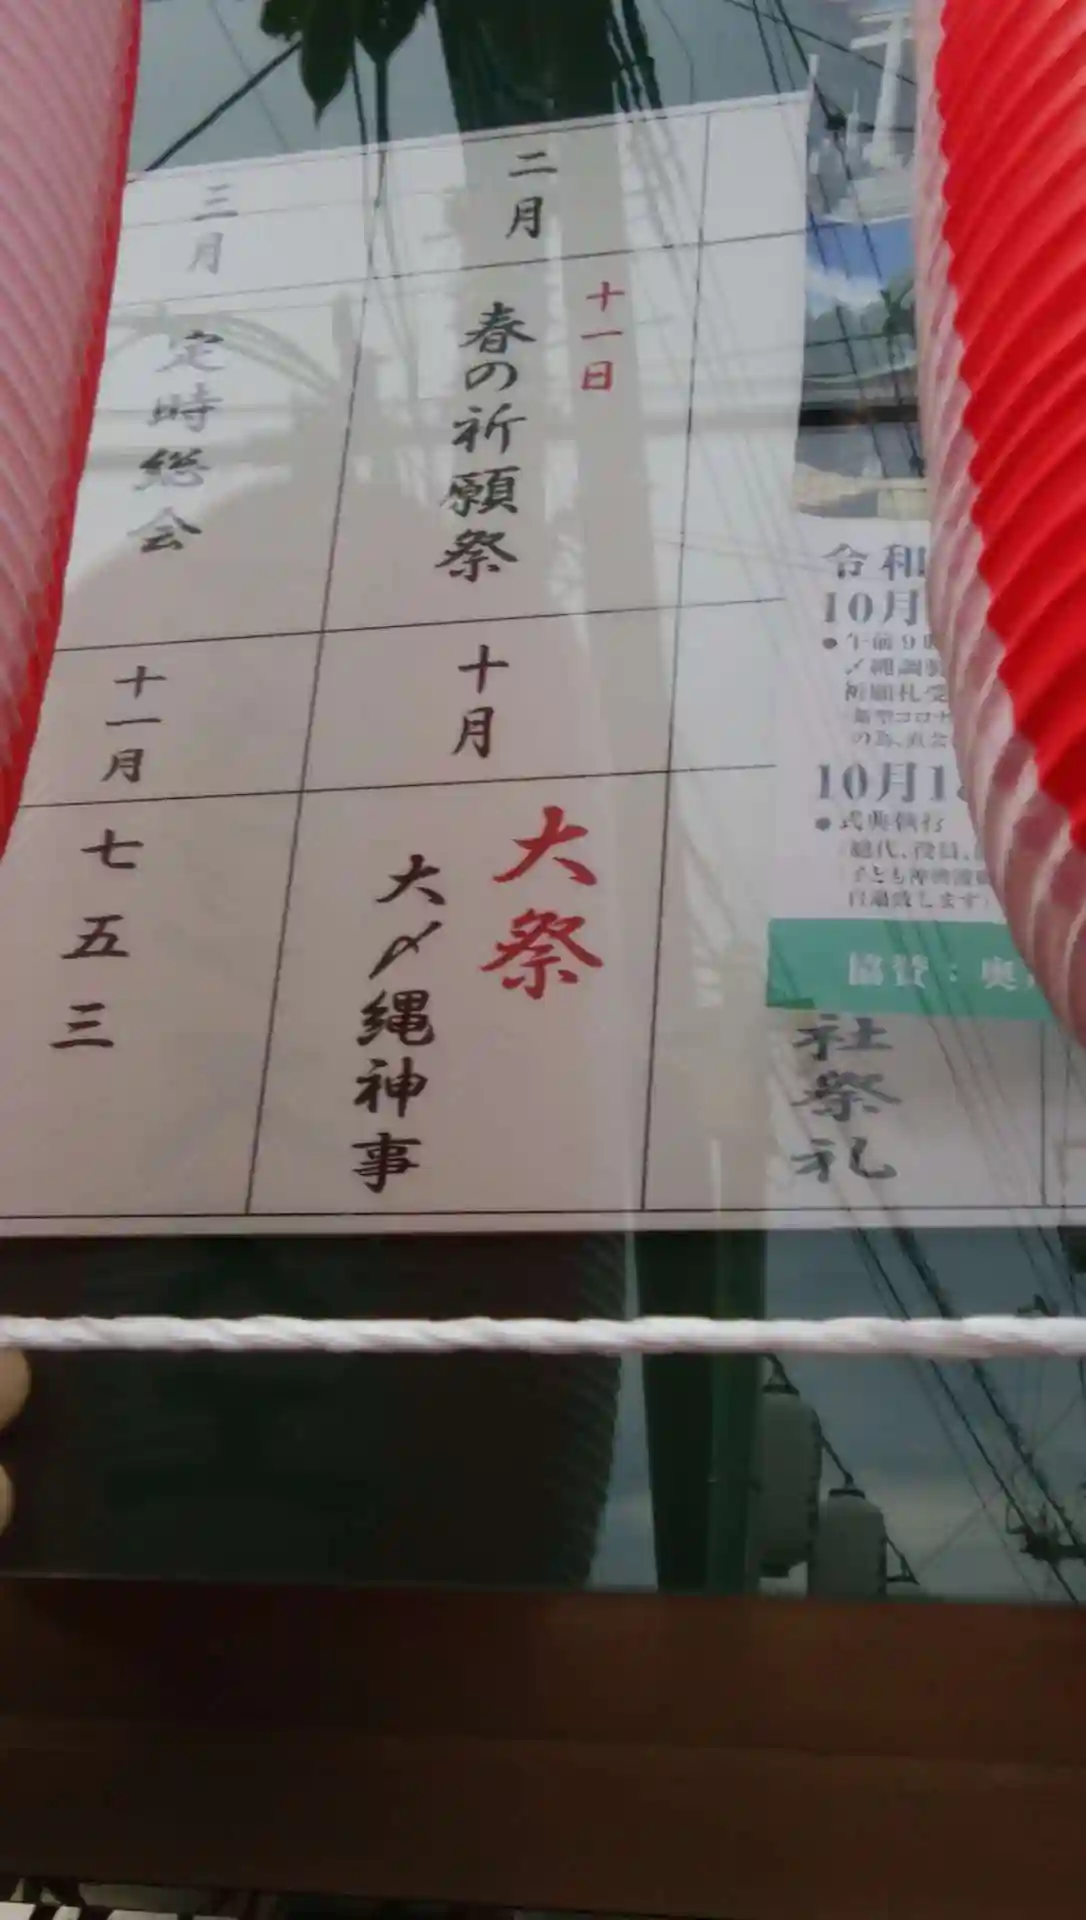 二月
十一日
春の祈願祭
三月
定時総会
十月
大祭
大〆縄神事
十一月
七五三
社祭礼
令和
10月
●午前9時
〆縄調
祈願札受
新型コロナ
の為、直会
10月1
●式典執行
総代、役員、
子ども神輿渡
自粛致します
協賛：奥